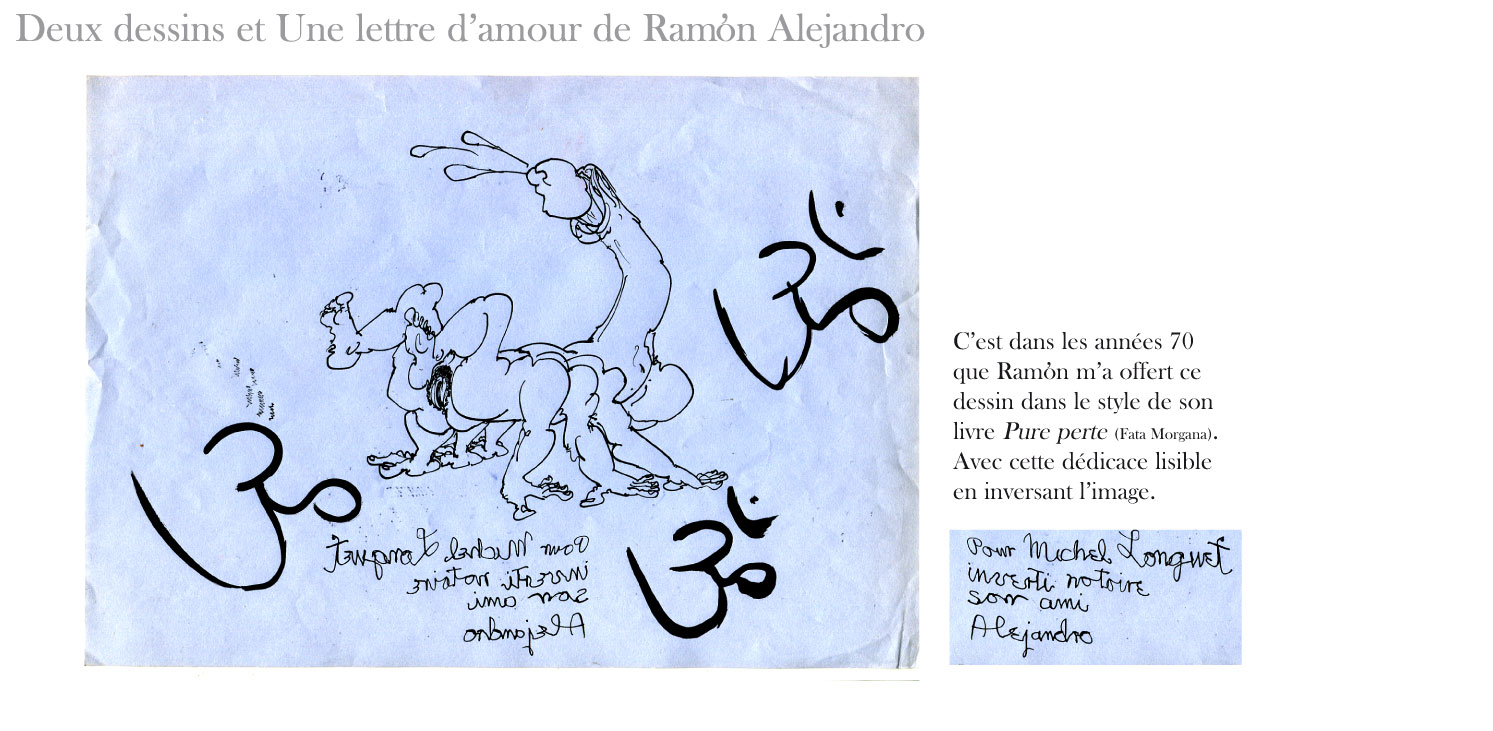 Deux dessins et Une lettre d’amour de Ramỏn Alejandro
ॐ
ॐ
ॐ
Pour Michel Longuet
inverti notoire
son ami
Alejandro
C’est dans les années 70
que Ramỏn m’a offert ce
dessin dans le style de son
livre Pure perte (Fata Morgana).
Avec cette dédicace lisible
en inversant l’image.
Pour Michel Longuet
inverti notoire
son ami
Alejandro